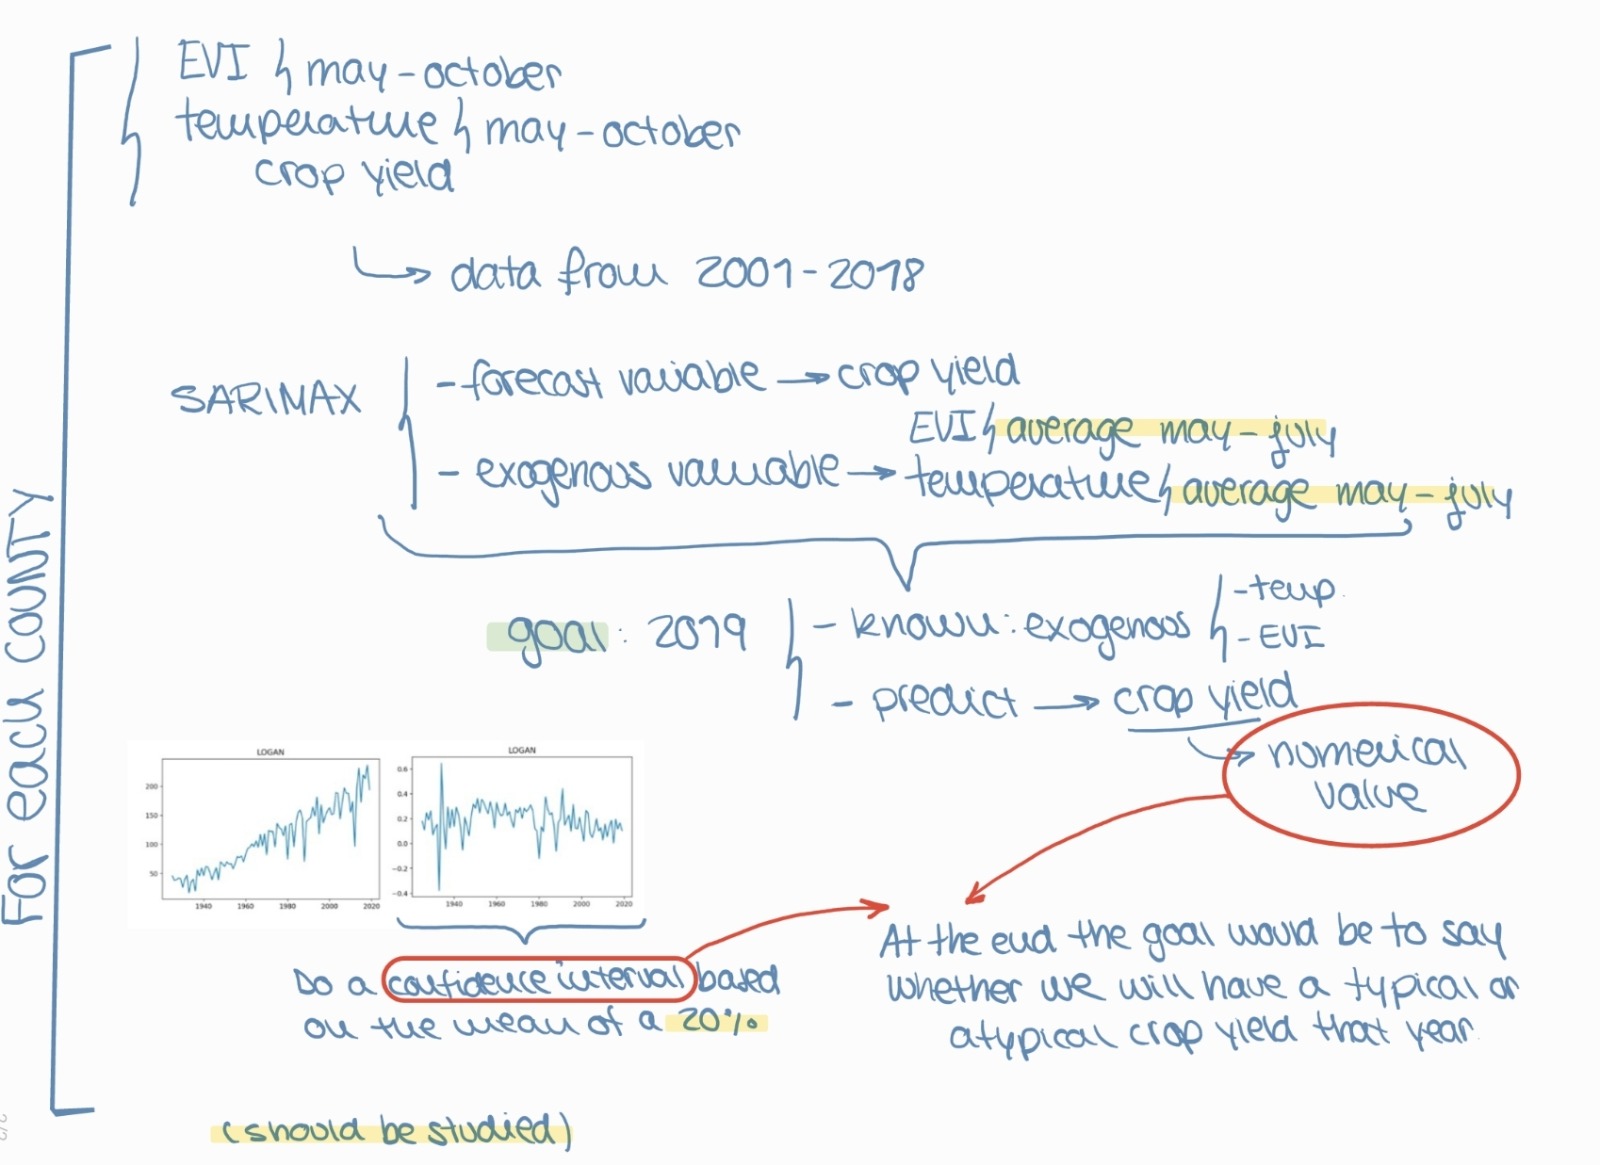 For each COUNTY
EVI may-october
temperature may-october
crop yield
data from 2001-2018
SARIMAX
- forecast variable → crop yield
EVI average may-july
- exogenous variable → temperature average may-july
goal: 2019
- known: exogenous
- temp.
- EVI
- predict → crop yield
numerical
value
LOGAN
200
150
100
50
1940 1960 1980 2000 2020
LOGAN
0.6
0.4
0.2
0.0
-0.2
-0.4
1940 1960 1980 2000 2020
Do a confidence interval based
on the mean of a 20%
At the end the goal would be to say
whether we will have a typical or
atypical crop yield that year.
(should be studied)